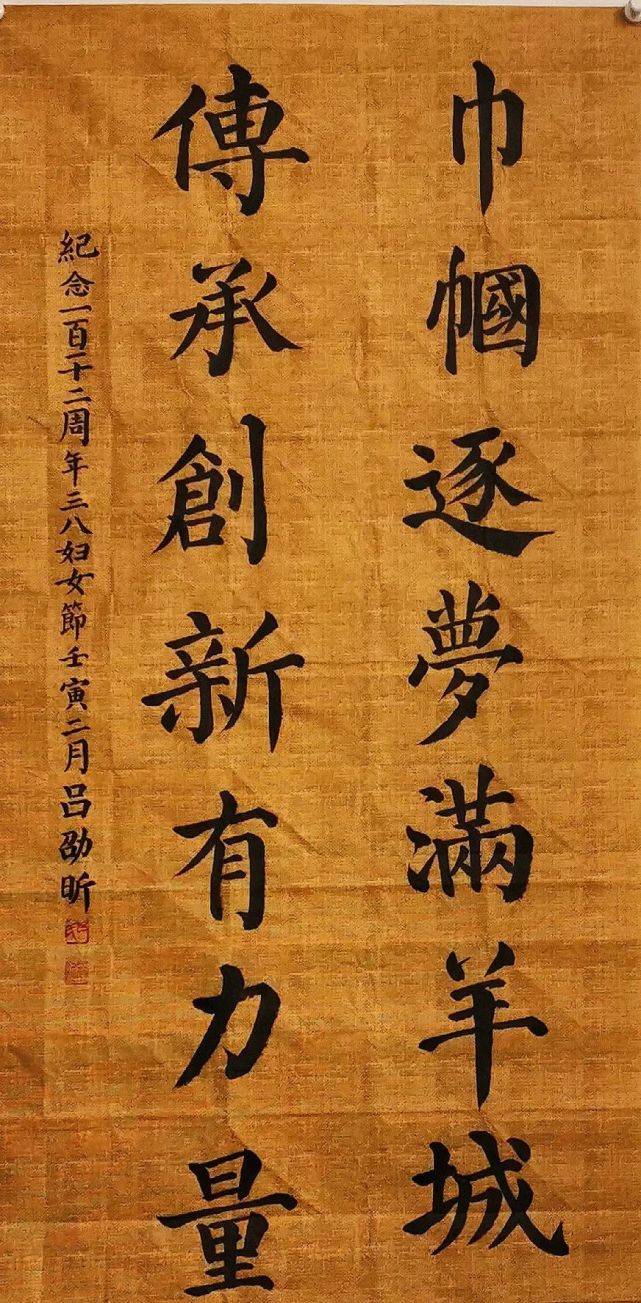 巾幗逐夢滿羊城
傳承創新有力量
紀念一百十二周年三八妇女節壬寅二月吕劭昕